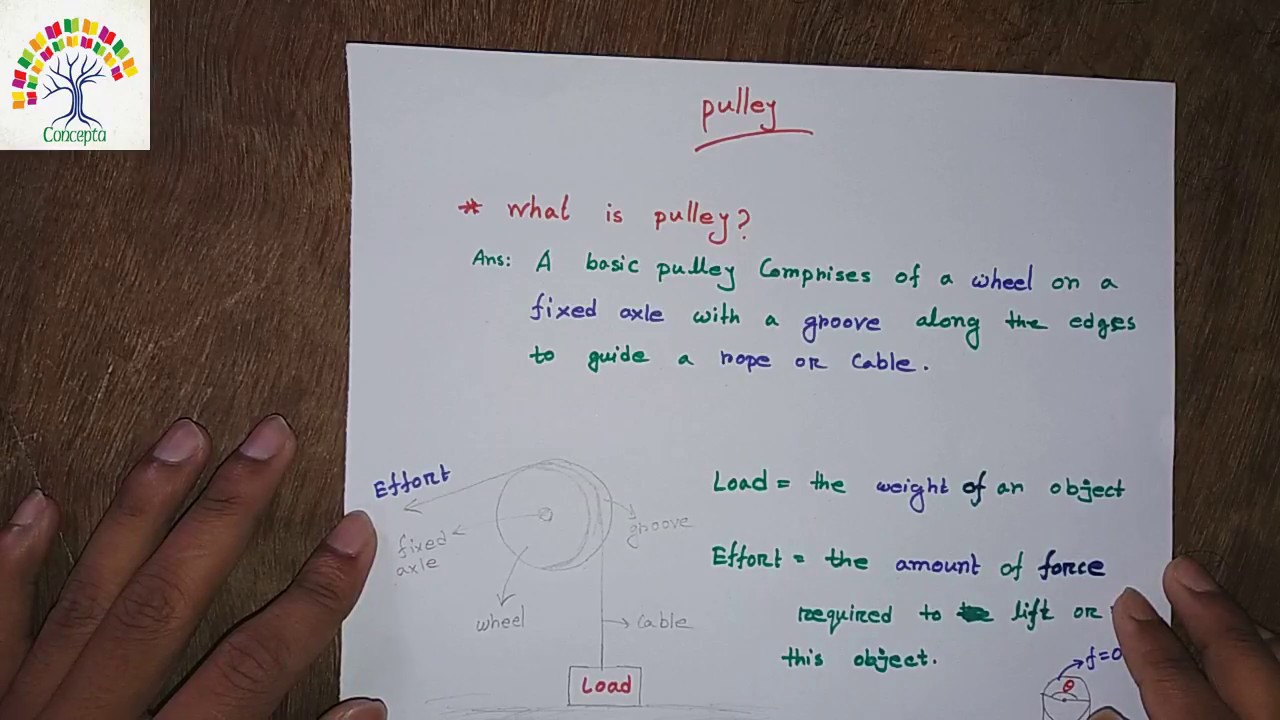 Concepta
pulley
* What is pulley?
Ans: A basic pulley Comprises of a wheel on a
fixed axle with a groove along the edges
to guide a rope or Cable.
Effort
fixed
axle
groove
wheel
Cable
Load
Load = the weight of an object
Effort = the amount of force
required to lift or
this object.
f=0
θ